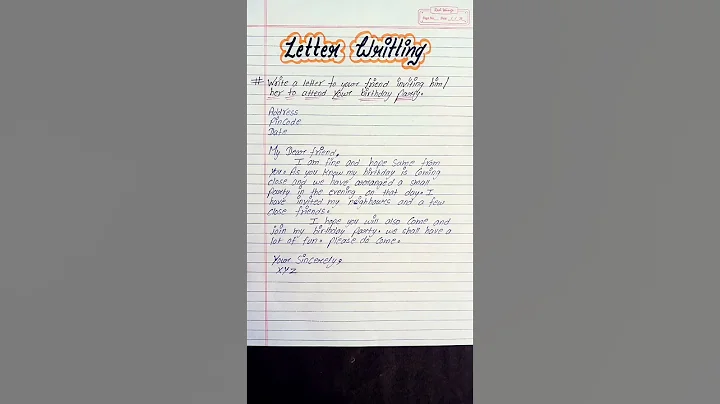 Letter Writting
# Write a letter to your friend inviting him/
her to attend your birthday party.
Address
Pincode
Date
My Dear friend,
I am fine and hope same from
you. As you know my birthday is coming
close and we have arranged a small
party in the evening on that day. I
have invited my neighbours and a few
close friends.
I hope you will also come and
join my birthday party. we shall have a
lot of fun. please do come.
Your Sincerely,
XYZ